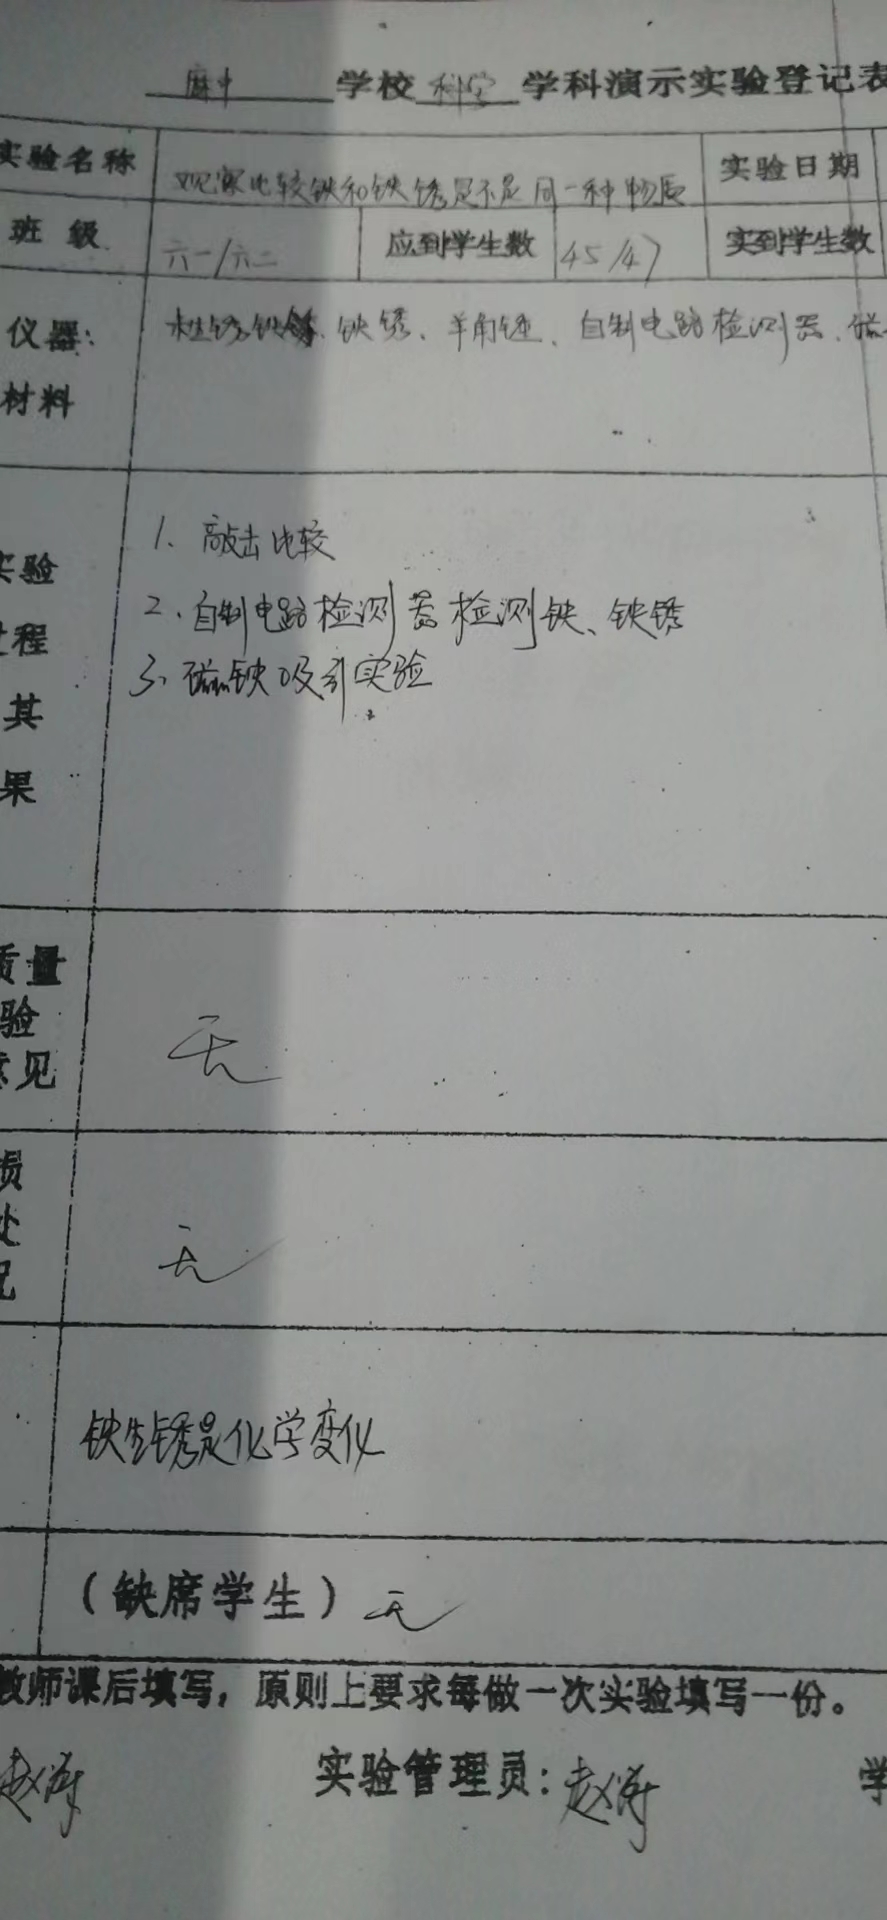 麻中 学校 科学 学科演示实验登记表
实验名称 观察比较铁和铁锈是不是同一种物质 实验日期
班级 六一/六二 应到学生数 45/47 实到学生数
仪器: 铁锈、羊角锤、自制电路检测器、磁
材料
1、敲击比较
实验
2、自制电路检测器检测铁、铁锈
过程
3、磁铁吸引实验
其
果
质量
验 无
意见
损
处 无
况
铁生锈是化学变化
(缺席学生) 无
教师课后填写，原则上要求每做一次实验填写一份。
赵海 实验管理员: 赵海 学